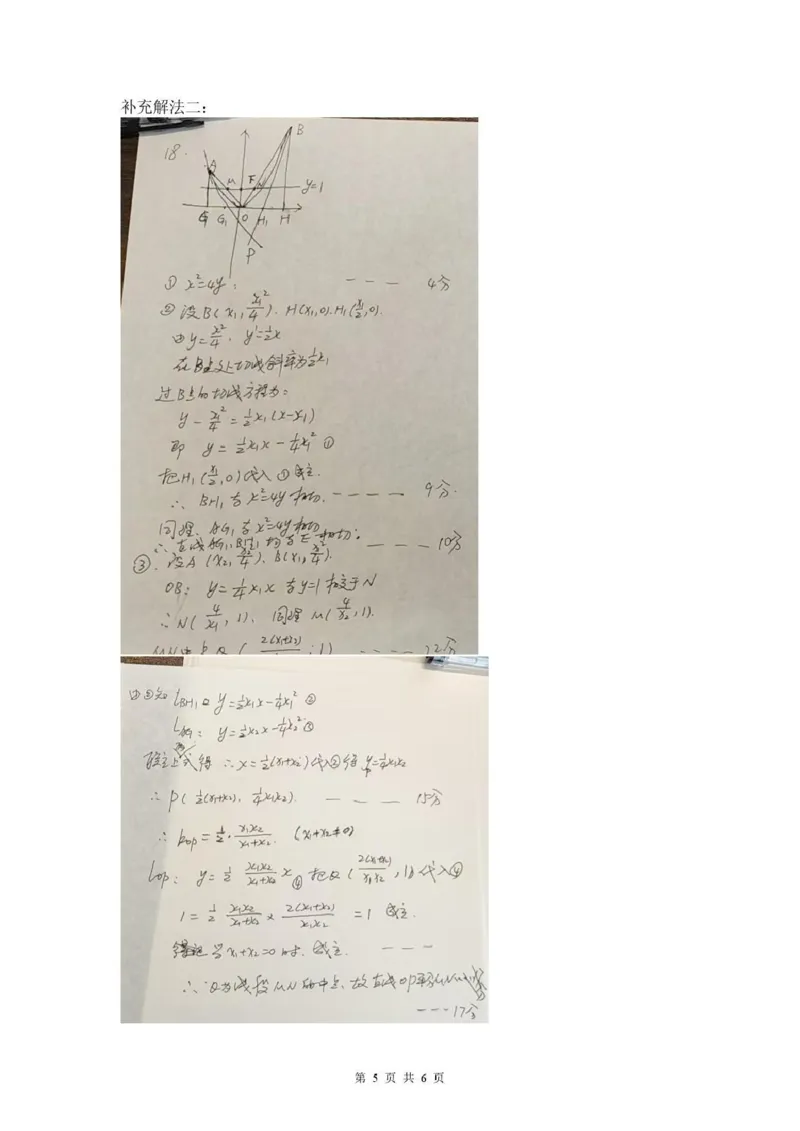 补充解法二：
18.
A
B
M
F
N
y=1
G
G₁
O
H₁
H
P
① x²=4y； --- 4分
② 设B(x₁, x₁²/4). H(x₁,0). H₁(x₁/2,0).
由y=x²/4, y'=½x
在B点处切线斜率为½x₁
过B点的切线方程为：
y-x₁²/4=½x₁(x-x₁)
即 y=½x₁x-¼x₁² ①
把H₁(x₁/2,0)代入①成立.
∴ BH₁与x²=4y相切. ---- 9分.
同理、AG₁与x²=4y相切
∴直线AG₁、BH₁均与E相切. --- 10分
③. 设A(x₂, x₂²/4)、B(x₁, x₁²/4).
OB: y=¼x₁x 与y=1相交于N
∴N(4/x₁, 1)、同理M(4/x₂, 1).
MN中点Q( 2(x₁+x₂) , 1) ---- 12分
由②知 l_BH₁: y=½x₁x-¼x₁² ②
l_AG₁: y=½x₂x-¼x₂² ③
联立上式得 ∴x=½(x₁+x₂)代入②得y=¼x₁x₂
∴P(½(x₁+x₂), ¼x₁x₂). --- 15分
∴k_OP=½·x₁x₂/(x₁+x₂). (x₁+x₂≠0)
l_OP: y=½ x₁x₂/(x₁+x₂) x ④ 把Q(2(x₁+x₂)/x₁x₂, 1)代入④
1=½ x₁x₂/(x₁+x₂) × 2(x₁+x₂)/x₁x₂ =1 成立.
当x₁+x₂=0时. 成立. ---
∴Q为线段MN的中点、故直线OP平分MN
---17分
第 5 页 共 6 页